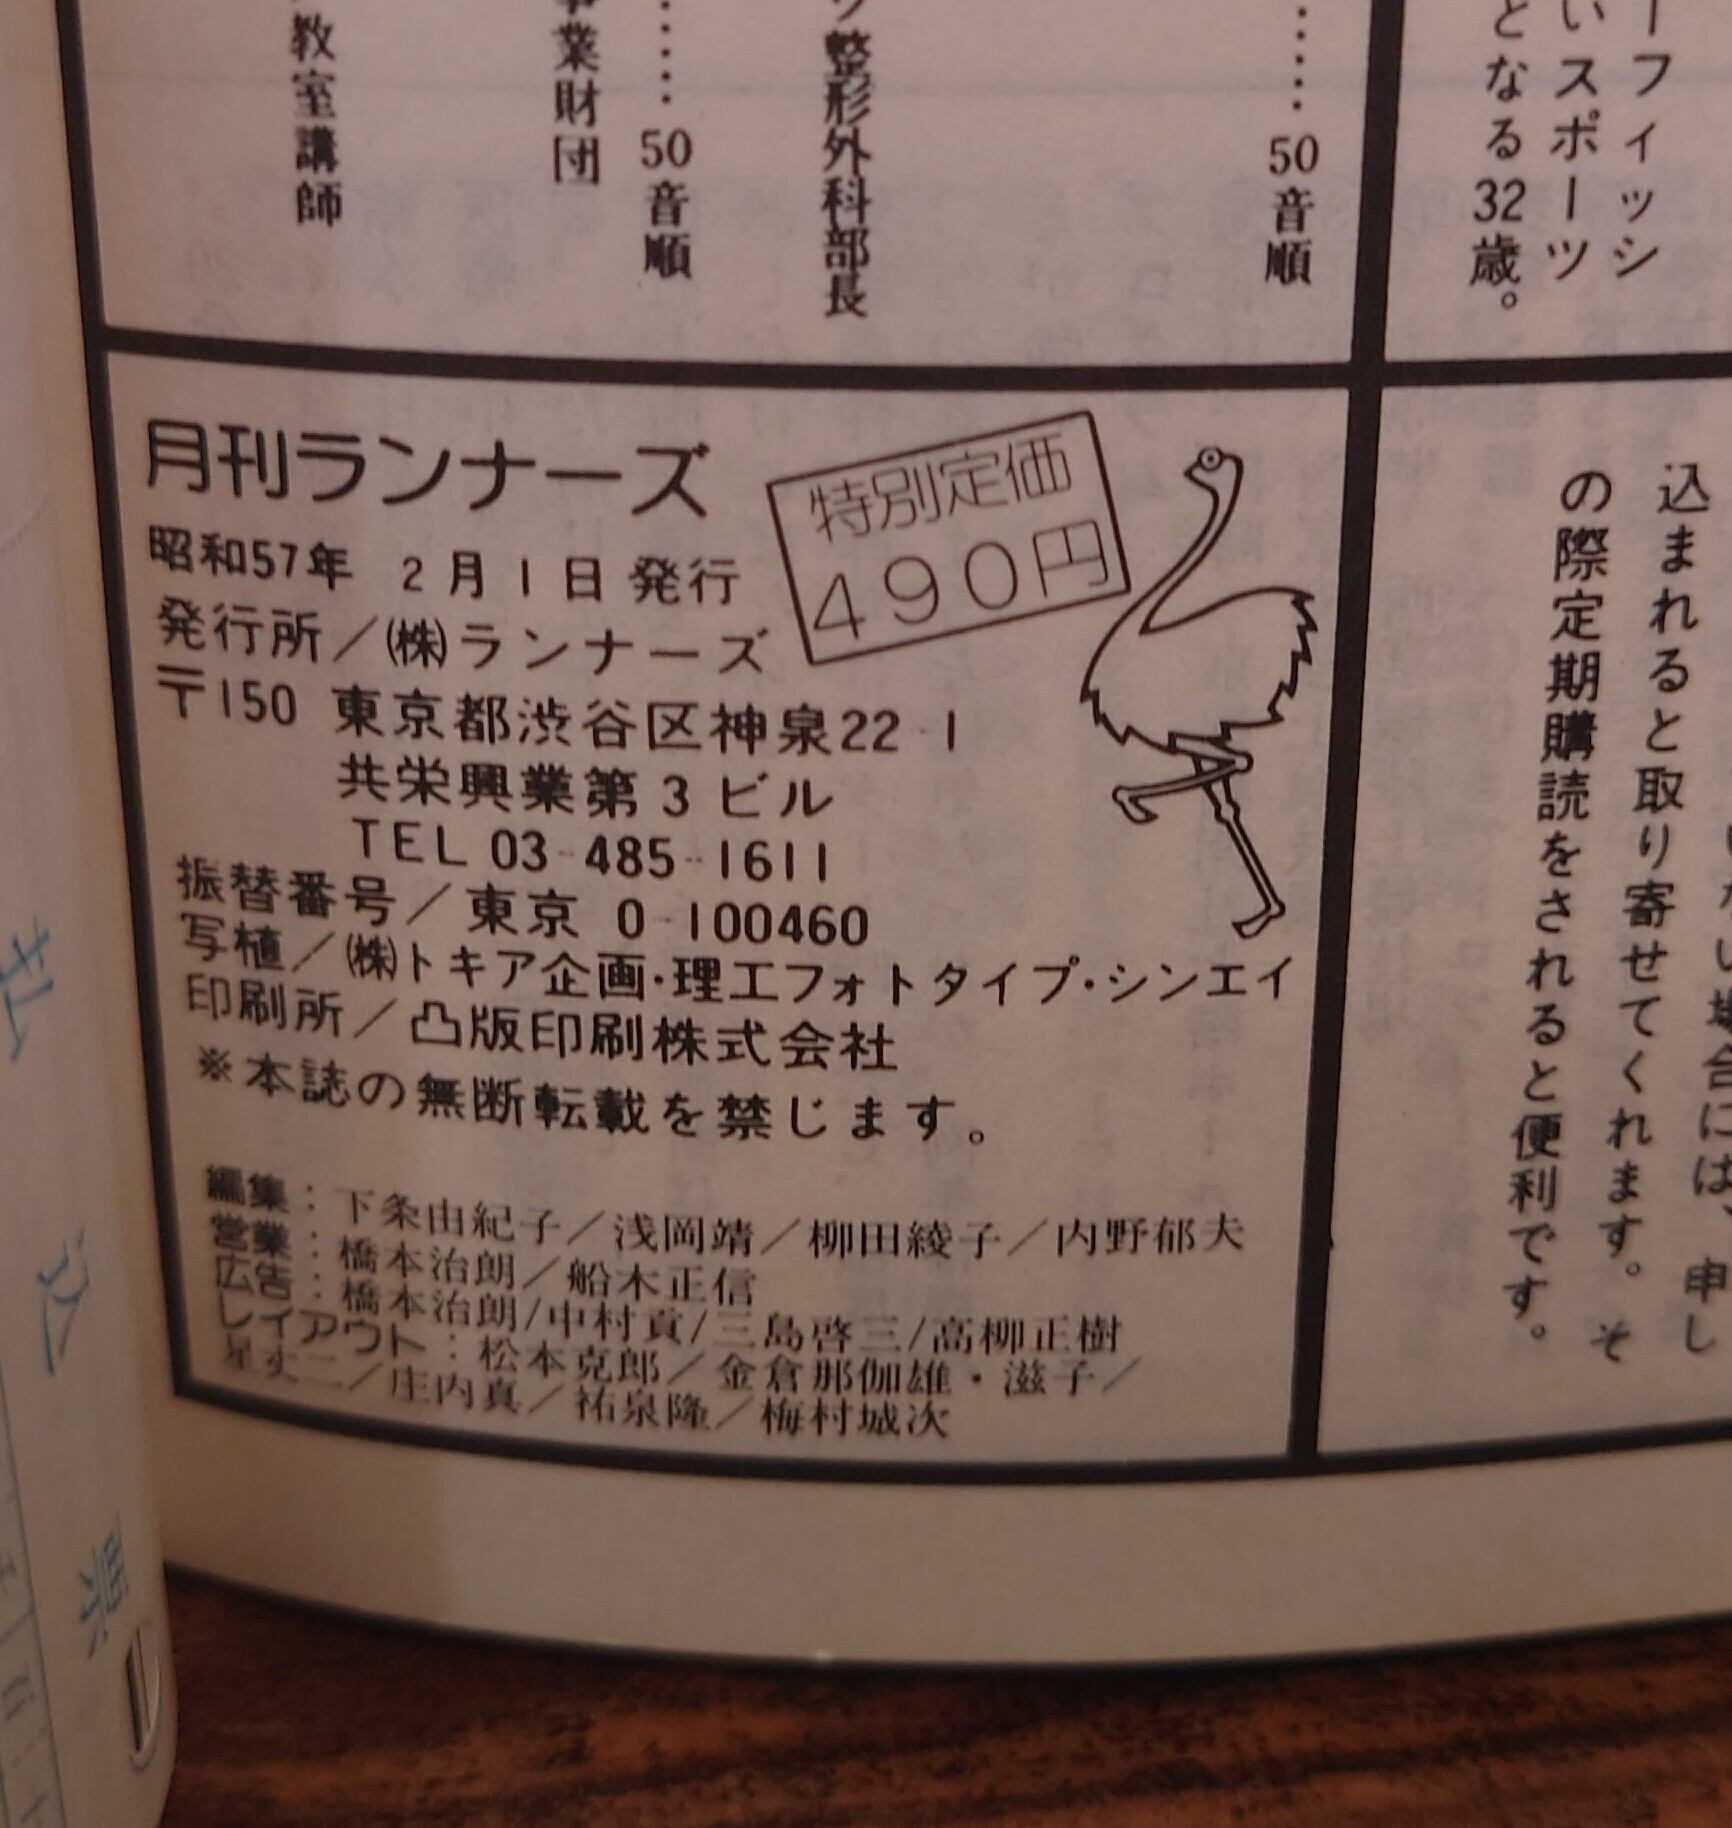 ーフィッシ
いスポーツ
となる32歳。
……50音順
ツ整形外科部長
……50音順
事業財団
教室講師
月刊ランナーズ
特別定価
490円
昭和57年 2月1日発行
発行所／(株)ランナーズ
〒150 東京都渋谷区神泉22-1
共栄興業第3ビル
TEL 03-485-1611
振替番号／東京 0-100460
写植／(株)トキア企画・理工フォトタイプ・シンエイ
印刷所／凸版印刷株式会社
※本誌の無断転載を禁じます。
編集：下条由紀子／浅岡靖／柳田綾子／内野郁夫
営業：橋本治朗／船木正信
広告：橋本治朗/中村貢/三島啓三/高柳正樹
レイアウト：松本克郎／金倉那伽雄・滋子／
星丈二／庄内真／祐泉隆／梅村城次
い場合には、申し
込まれると取り寄せてくれます。そ
の際定期購読をされると便利です。